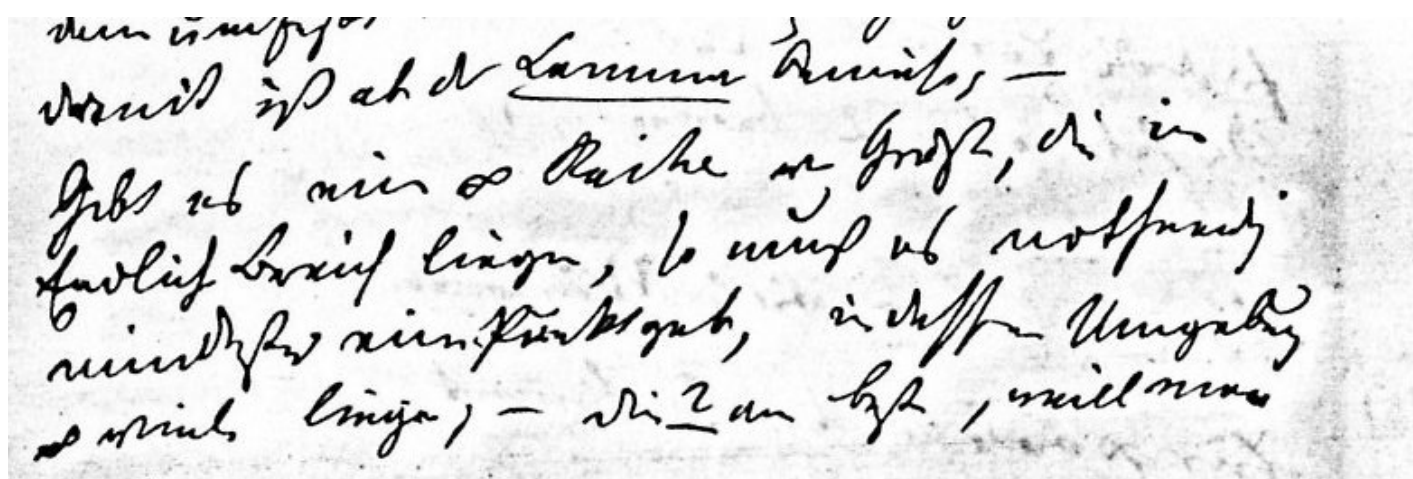 damit ist ab der Lemma bewiesen, —
Gibt es ein ∞ Reihe von Größen, die im
Endlich Bereich liegen, so muß es nothwendig
mindestens einen Punkt geben, in dessen Umgebung
∞ viele liegen, — die 2 am , will man